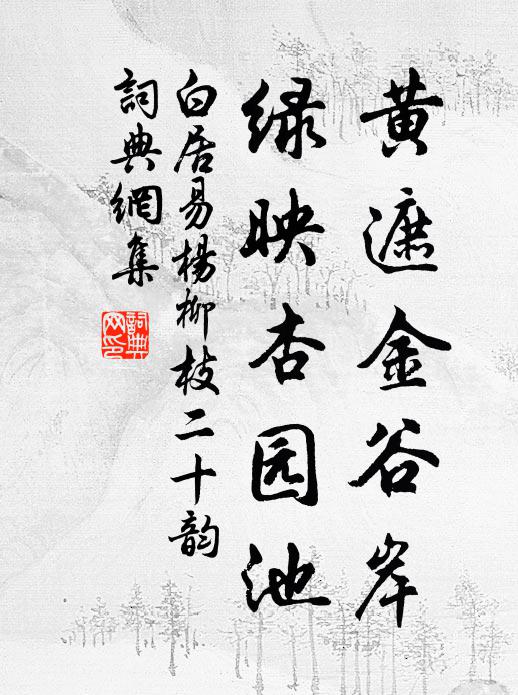 黄遮金谷岸
绿映杏园池
白居易楊柳枝二十韵
詞典網集
詞典網印